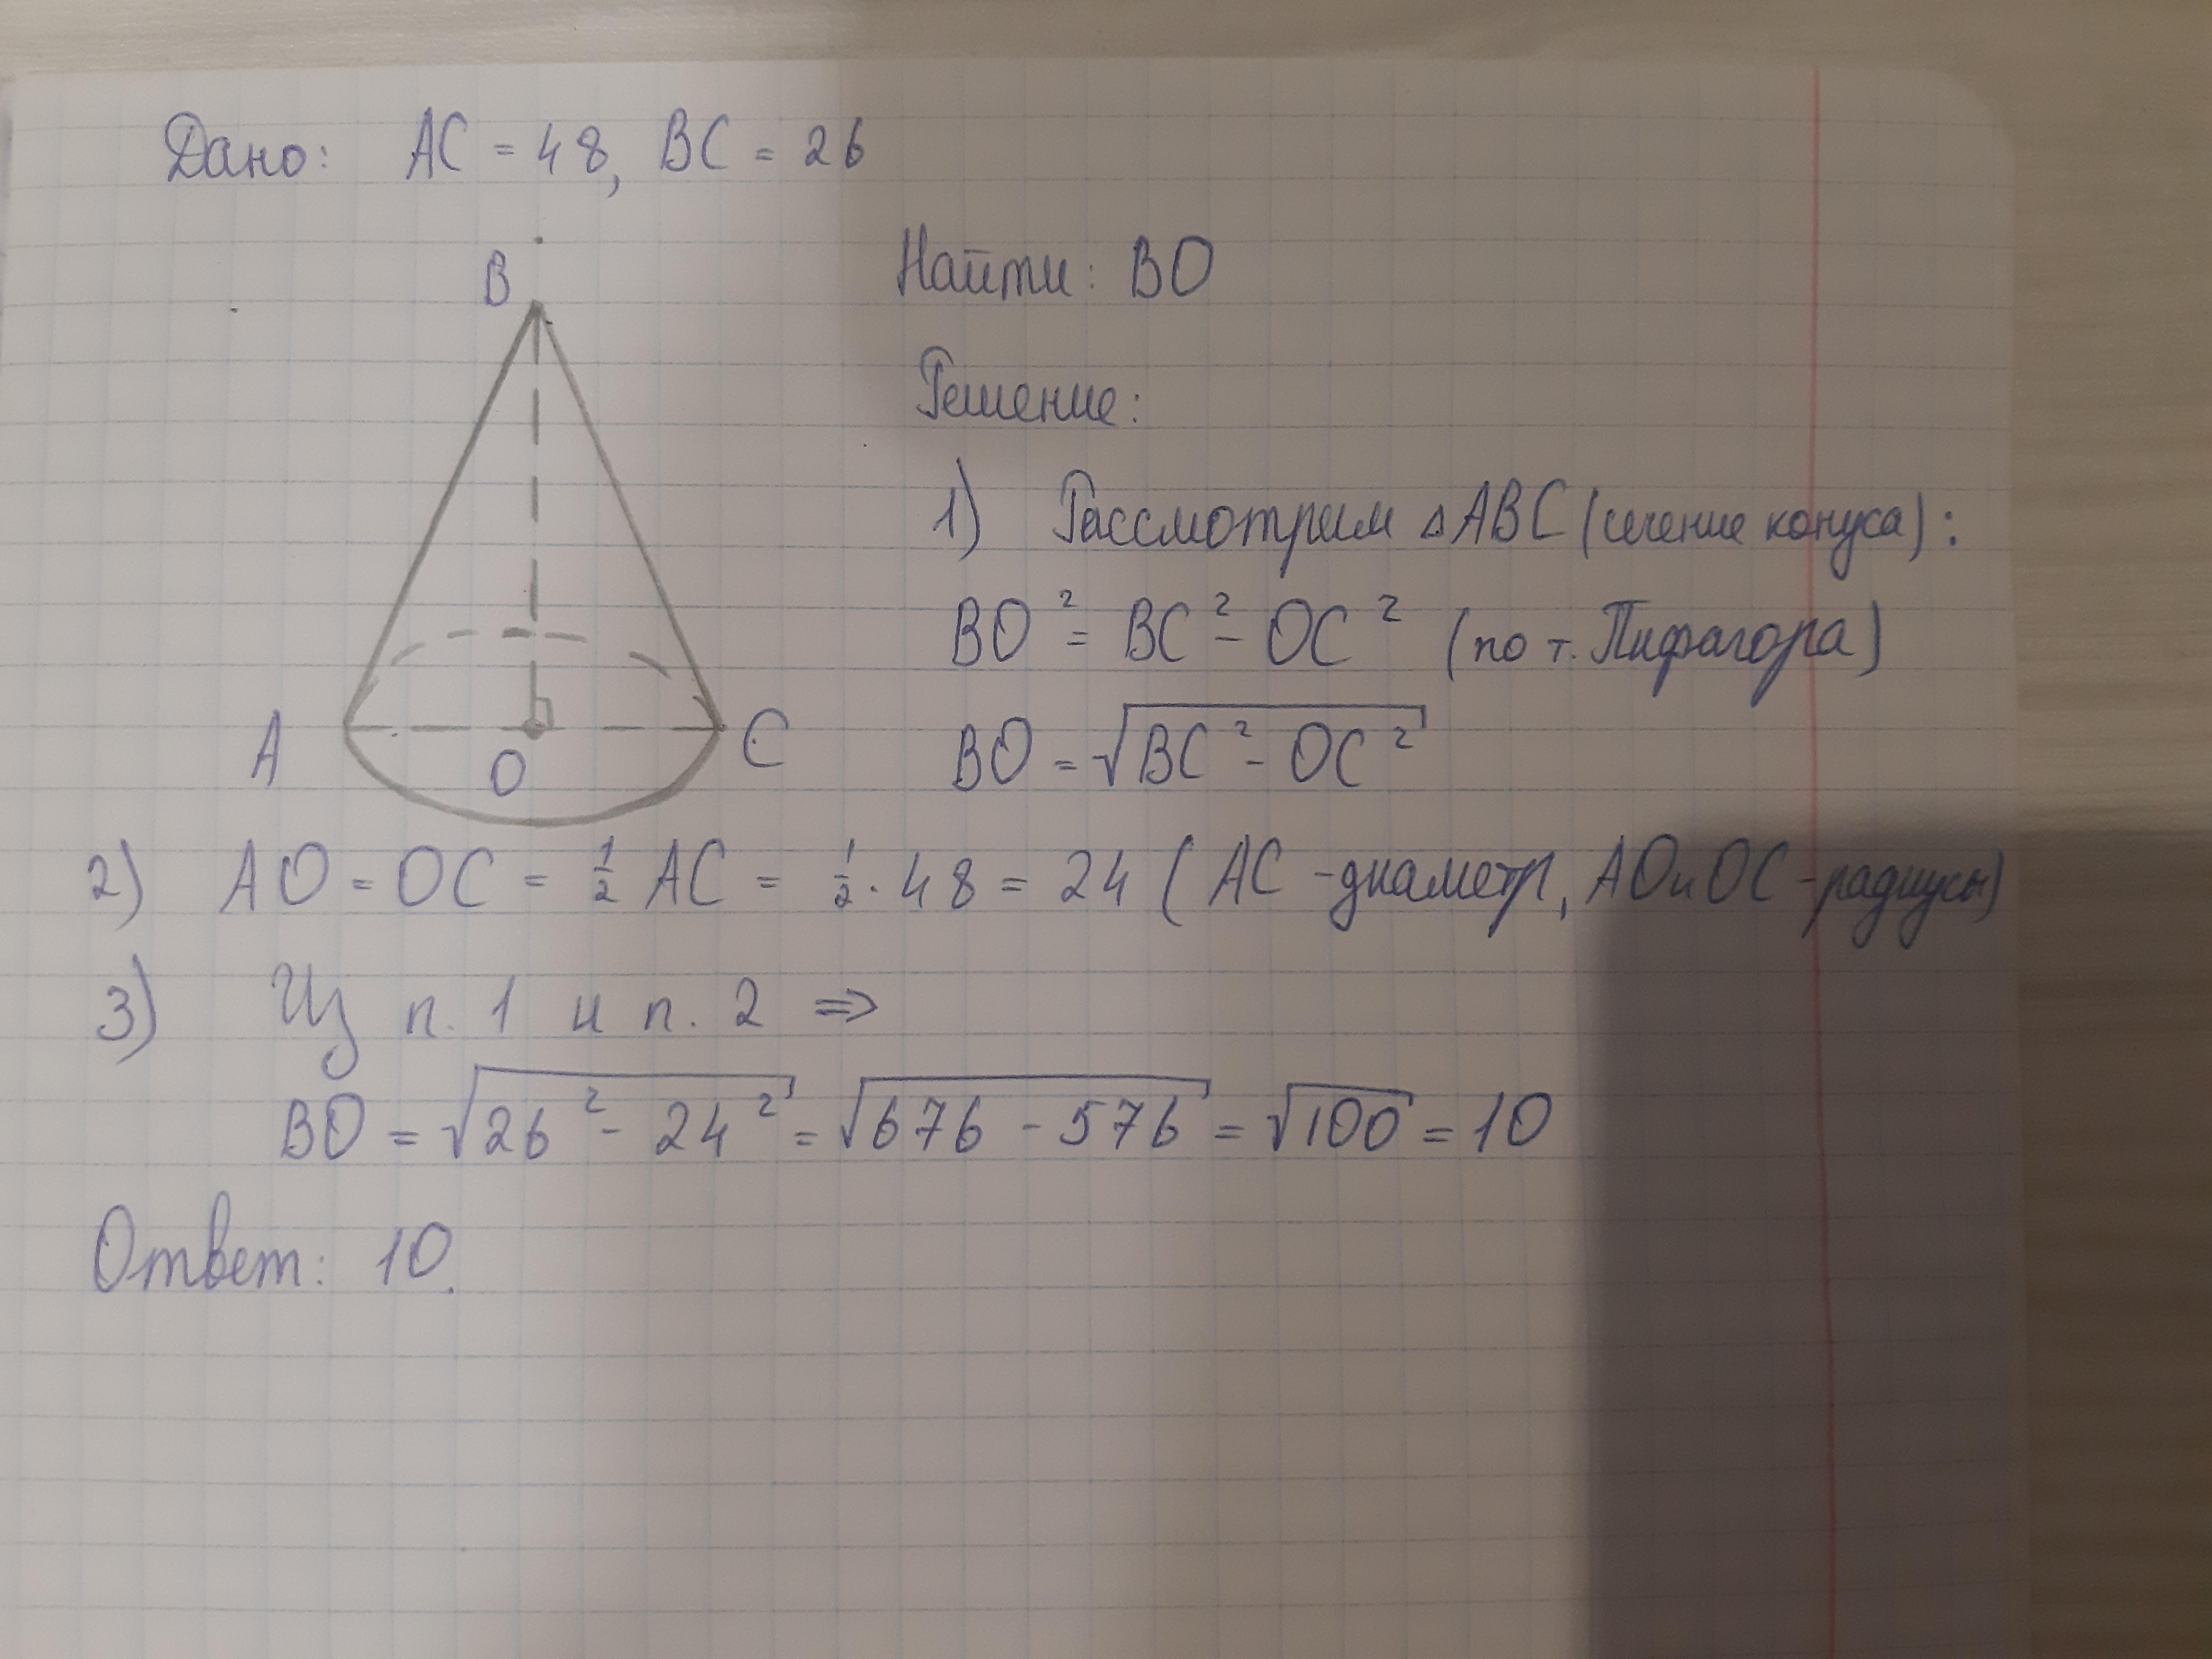 Дано: AC = 48, BC = 26
B
Найти: BO
Решение:
1) Рассмотрим △ABC (сечение конуса):
BO² = BC² - OC² (по т. Пифагора)
A O C
BO = √(BC² - OC²)
2) AO = OC = 1/2 AC = 1/2 · 48 = 24 (AC - диаметр, AO и OC - радиусы)
3) Из п. 1 и п. 2 ⇒
BO = √(26² - 24²) = √(676 - 576) = √100 = 10
Ответ: 10.